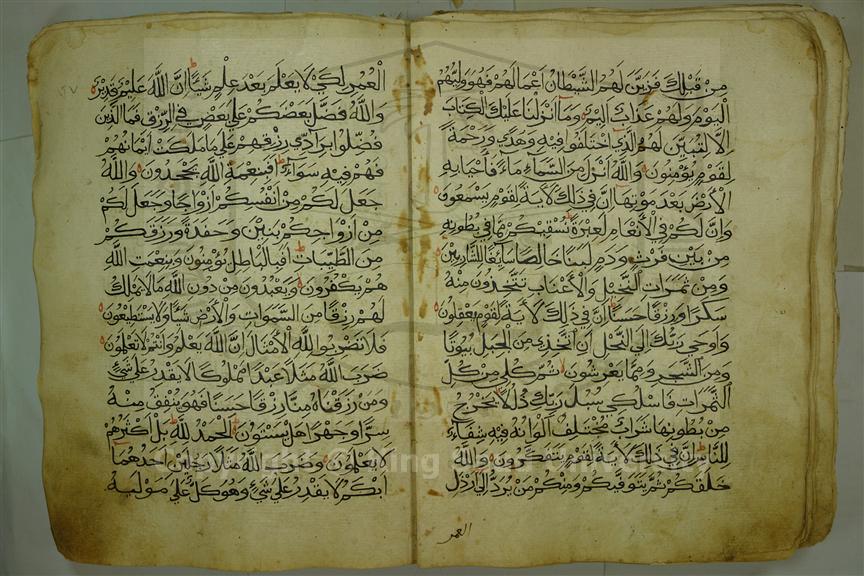 من قبلك فزين لهم الشيطان اعمالهم فهو وليهم
اليوم ولهم عذاب اليم وما انزلنا عليك الكتاب
الا لتبين لهم الذي اختلفوا فيه وهدي ورحمة
لقوم يؤمنون والله انزل من السماء ماء فاحيا به
الارض بعد موتها ان في ذلك لاية لقوم يسمعون
وان لكم في الانعام لعبرة نسقيكم مما في بطونه
من بين فرث ودم لبنا خالصا سائغا للشاربين
ومن ثمرات النخيل والاعناب تتخذون منه
سكرا ورزقا حسنا ان في ذلك لاية لقوم يعقلون
واوحي ربك الي النحل ان اتخذي من الجبال بيوتا
ومن الشجر ومما يعرشون ثم كلي من كل
الثمرات فاسلكي سبل ربك ذللا يخرج
من بطونها شراب مختلف الوانه فيه شفاء
للناس ان في ذلك لاية لقوم يتفكرون والله
خلقكم ثم يتوفيكم ومنكم من يرد الي ارذل
العمر
العمر لكي لا يعلم بعد علم شيئا ان الله عليم قدير
والله فضل بعضكم علي بعض في الرزق فما الذين
فضلوا برادي رزقهم علي ما ملكت ايمانهم
فهم فيه سواء افبنعمة الله يجحدون والله
جعل لكم من انفسكم ازواجا وجعل لكم
من ازواجكم بنين وحفدة ورزقكم
من الطيبات افبالباطل يؤمنون وبنعمت الله
هم يكفرون ويعبدون من دون الله ما لا يملك
لهم رزقا من السموات والارض شيئا ولا يستطيعون
فلا تضربوا لله الامثال ان الله يعلم وانتم لا تعلمون
ضرب الله مثلا عبدا مملوكا لا يقدر علي شيء
ومن رزقناه منا رزقا حسنا فهو ينفق منه
سرا وجهرا هل يستون الحمد لله بل اكثرهم
لا يعلمون وضرب الله مثلا رجلين احدهما
ابكم لا يقدر علي شيء وهو كل علي موليه